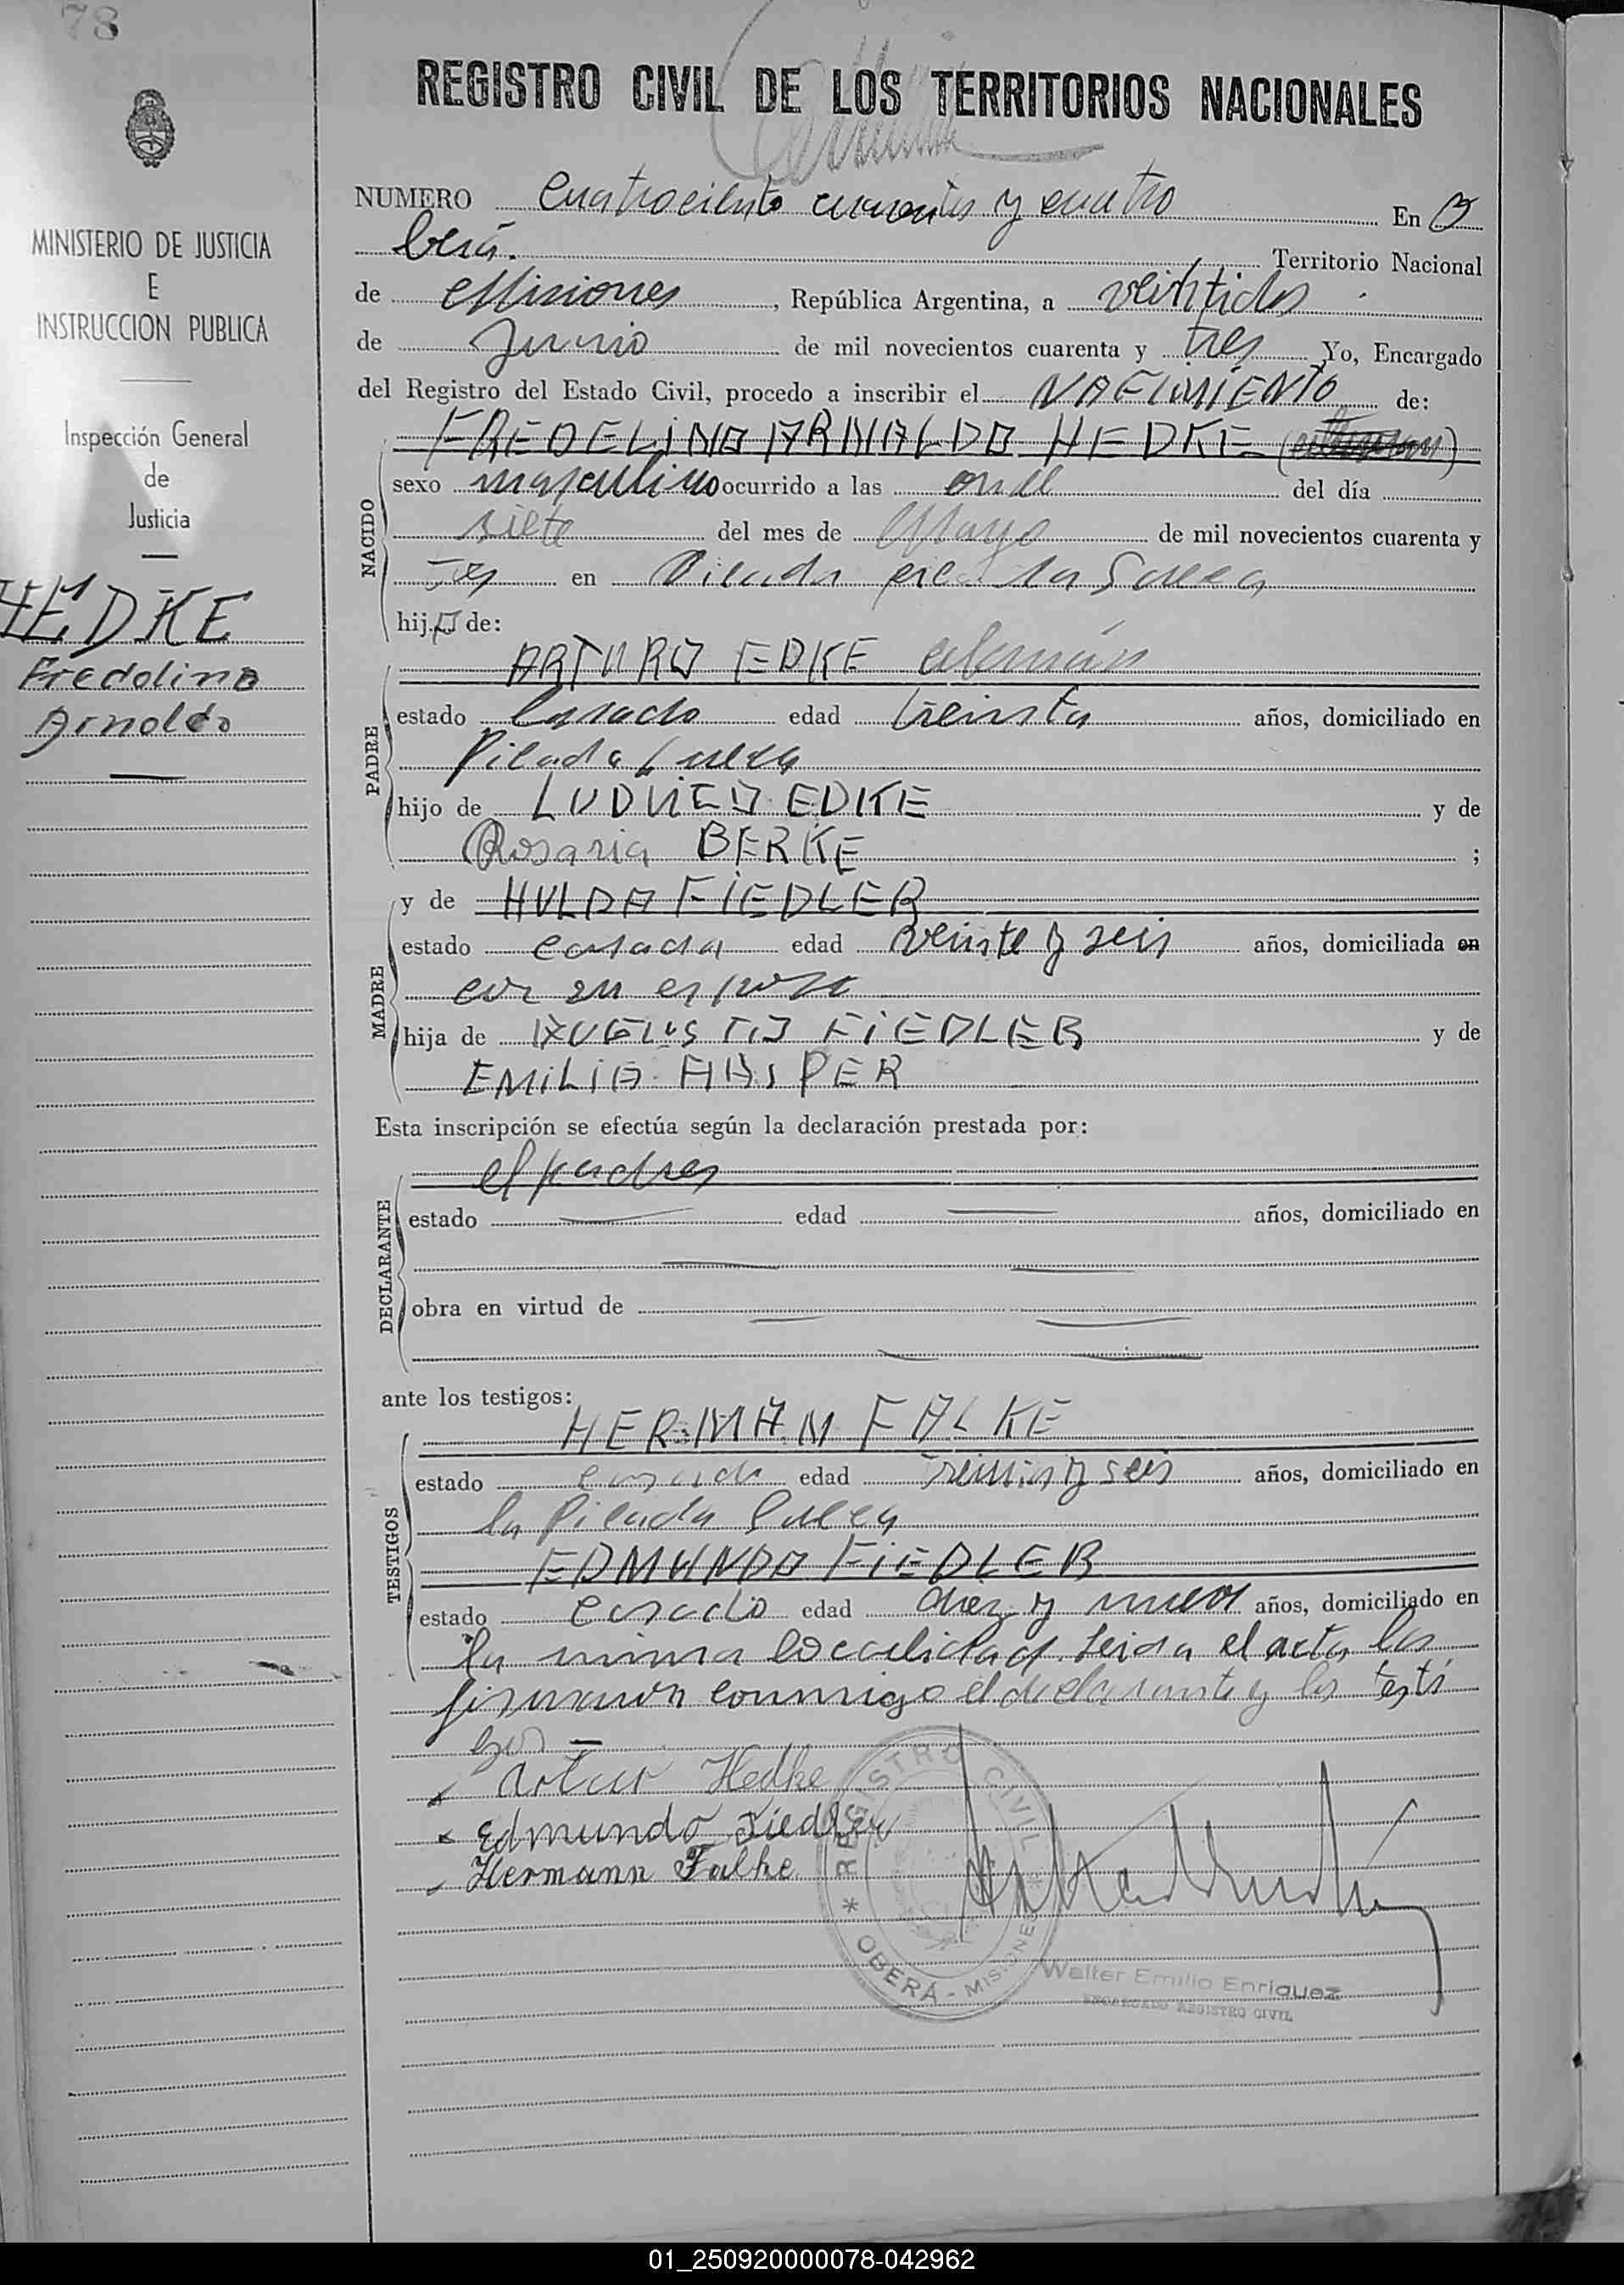 78
REGISTRO CIVIL DE LOS TERRITORIOS NACIONALES
MINISTERIO DE JUSTICIA
E
INSTRUCCION PUBLICA
Inspección General
de
Justicia
HEDKE
Fredolino
Arnoldo
NUMERO Cuatrociento cuarenta y cuatro En O
berá. Territorio Nacional
de Misiones, República Argentina, a veintidos
de Junio de mil novecientos cuarenta y tres Yo, Encargado
del Registro del Estado Civil, procedo a inscribir el NACIMIENTO de:
FREDELINO ARNALDO HEDKE
NACIDO
sexo masculino ocurrido a las once del día
siete del mes de Mayo de mil novecientos cuarenta y
tres en Picada Sueca
hijo de:
ARTURO EDKE alemán
PADRE
estado casado edad treinta años, domiciliado en
Picada Sueca
hijo de LUDVICO EDKE y de
Rosaria BERKE ;
y de HULDA FIEDLER
MADRE
estado casada edad veinte y seis años, domiciliada en
con su esposo
hija de AUGUSTO FIEDLER y de
EMILIA HASPER
Esta inscripción se efectúa según la declaración prestada por:
el padres
DECLARANTE
estado edad años, domiciliado en
obra en virtud de
ante los testigos:
HERMAN FALKE
TESTIGOS
estado casado edad treinta y seis años, domiciliado en
la Picada Sueca
EDMUNDO FIEDLER
estado casado edad diez y nueve años, domiciliado en
la misma localidad. Leida el acta la
firmaron conmigo el declarante y los testi
gos
Artur Hedke
Edmundo Fiedler
Hermann Falke
REGISTRO CIVIL
OBERÁ - MISIONES
Walter Emilio Enriquez
ENCARGADO REGISTRO CIVIL
01_250920000078-042962